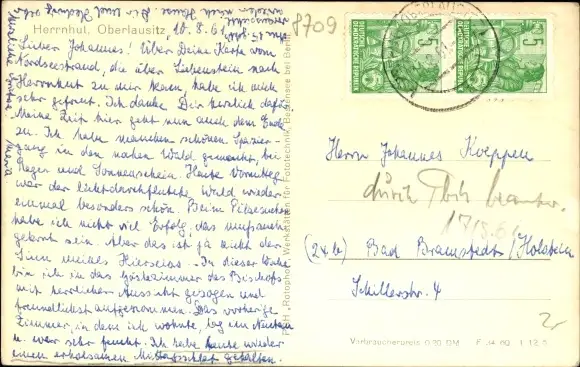 Herrnhut, Oberlausitz, 16.8.61
Lieber Johannes! Über Deine Karte vom
Nordseestrand, die über Liebenstein nach
Herrnhut zu mir kam, habe ich mich
sehr gefreut. Ich danke Dir herzlich dafür.
Meine Zeit hier geht nun auch dem Ende
zu. Ich habe manchen schönen Spazier-
gang in den nahen Wald gemacht, bei
Regen und Sonnenschein. Heute Vormittag
war der lichtdurchflutete Wald wieder
einmal besonders schön. Beim Pilzesuchen
habe ich nicht viel Erfolg, das muß auch
gelernt sein. Aber das ist ja nicht der
Sinn meines Hierseins. In dieser Woche
bin ich in das Gästezimmer des Bischofs
mit herrlicher Aussicht gezogen und
freundlichst aufgenommen. Das vorherige
Zimmer, in dem ich wohnte, lag im
u. war sehr feucht. Ich habe heute wieder
einen erholsamen Mittagsschlaf gehalten.
Maria
8709
DEUTSCHE DEMOKRATISCHE REPUBLIK
5
DEUTSCHE DEMOKRATISCHE REPUBLIK
5
Herrn Johannes Koeppen
durch
17/8.61
(24b) Bad Bramstedt/Holstein
Schillerstr. 4
Verbraucherpreis 0,20 DM